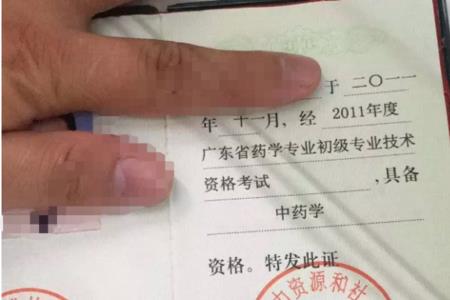 于 二〇一一
年 十一月, 经 2011年度
广东省药学专业初级专业技术
资格考试 ,具备
中药学
资格。特发此证
资源和社